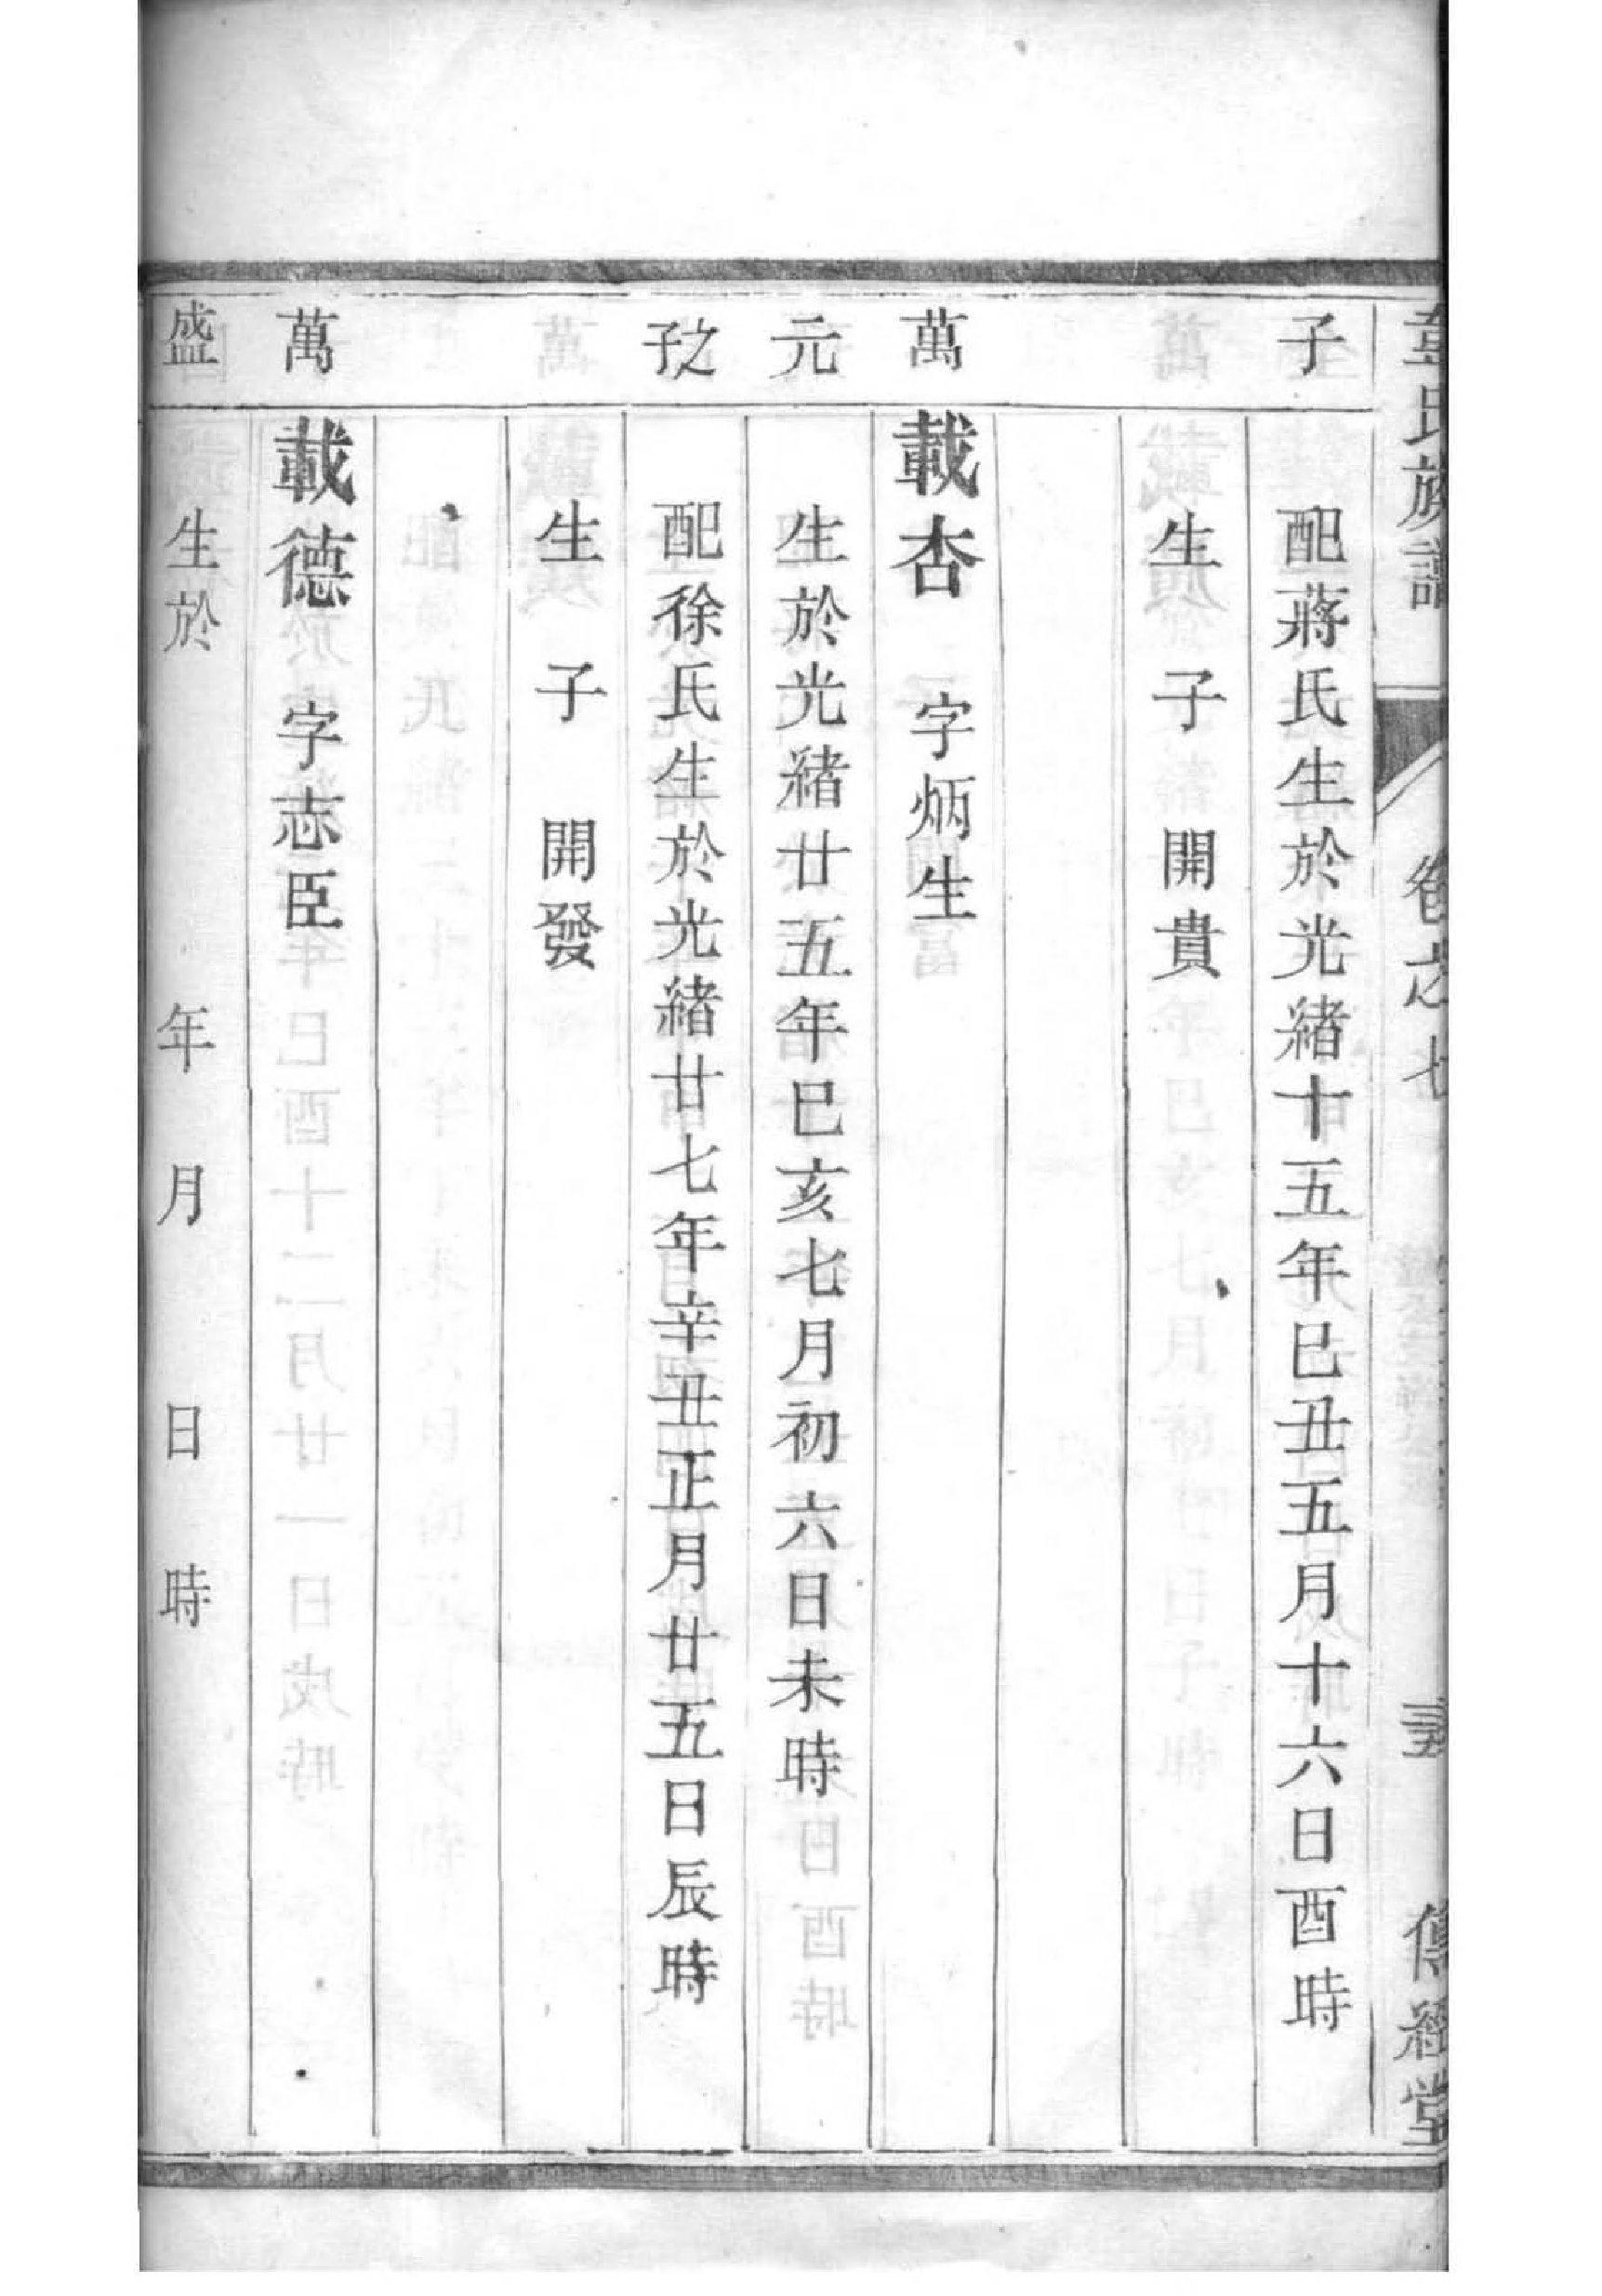 韋氏族譜 卷之七 傳經堂
子 配蔣氏生於光緒十五年巳丑五月十六日酉時
生 子 開貴
萬 載杏 字炳生
元 生於光緒廿五年巳亥七月初六日未時
之子 配徐氏生於光緒廿七年辛丑正月廿五日辰時
生 子 開發
萬 載德 字志臣
盛 生於 年 月 日 時